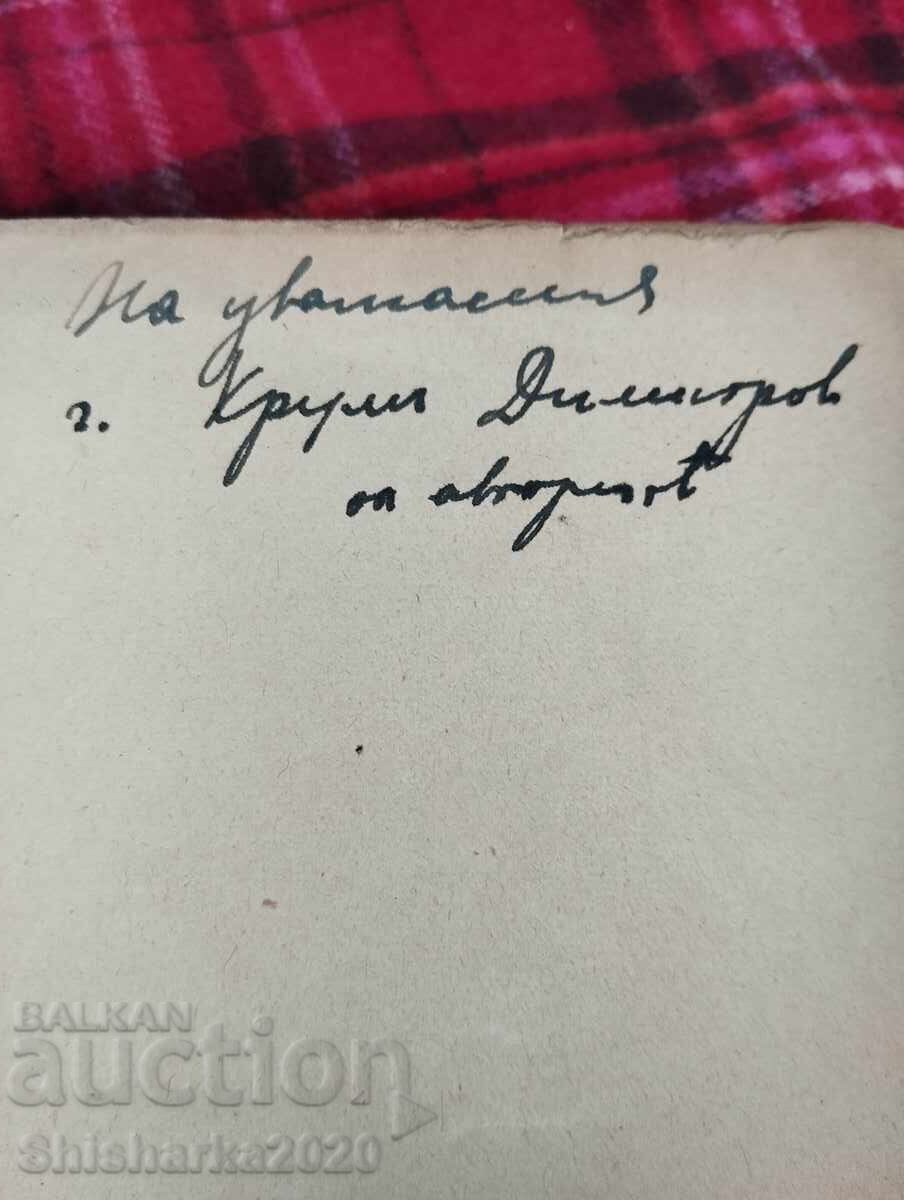 На уважаемия
г. Крумъ Димитров
от авторът
BALKAN
auction
Shisharka2020